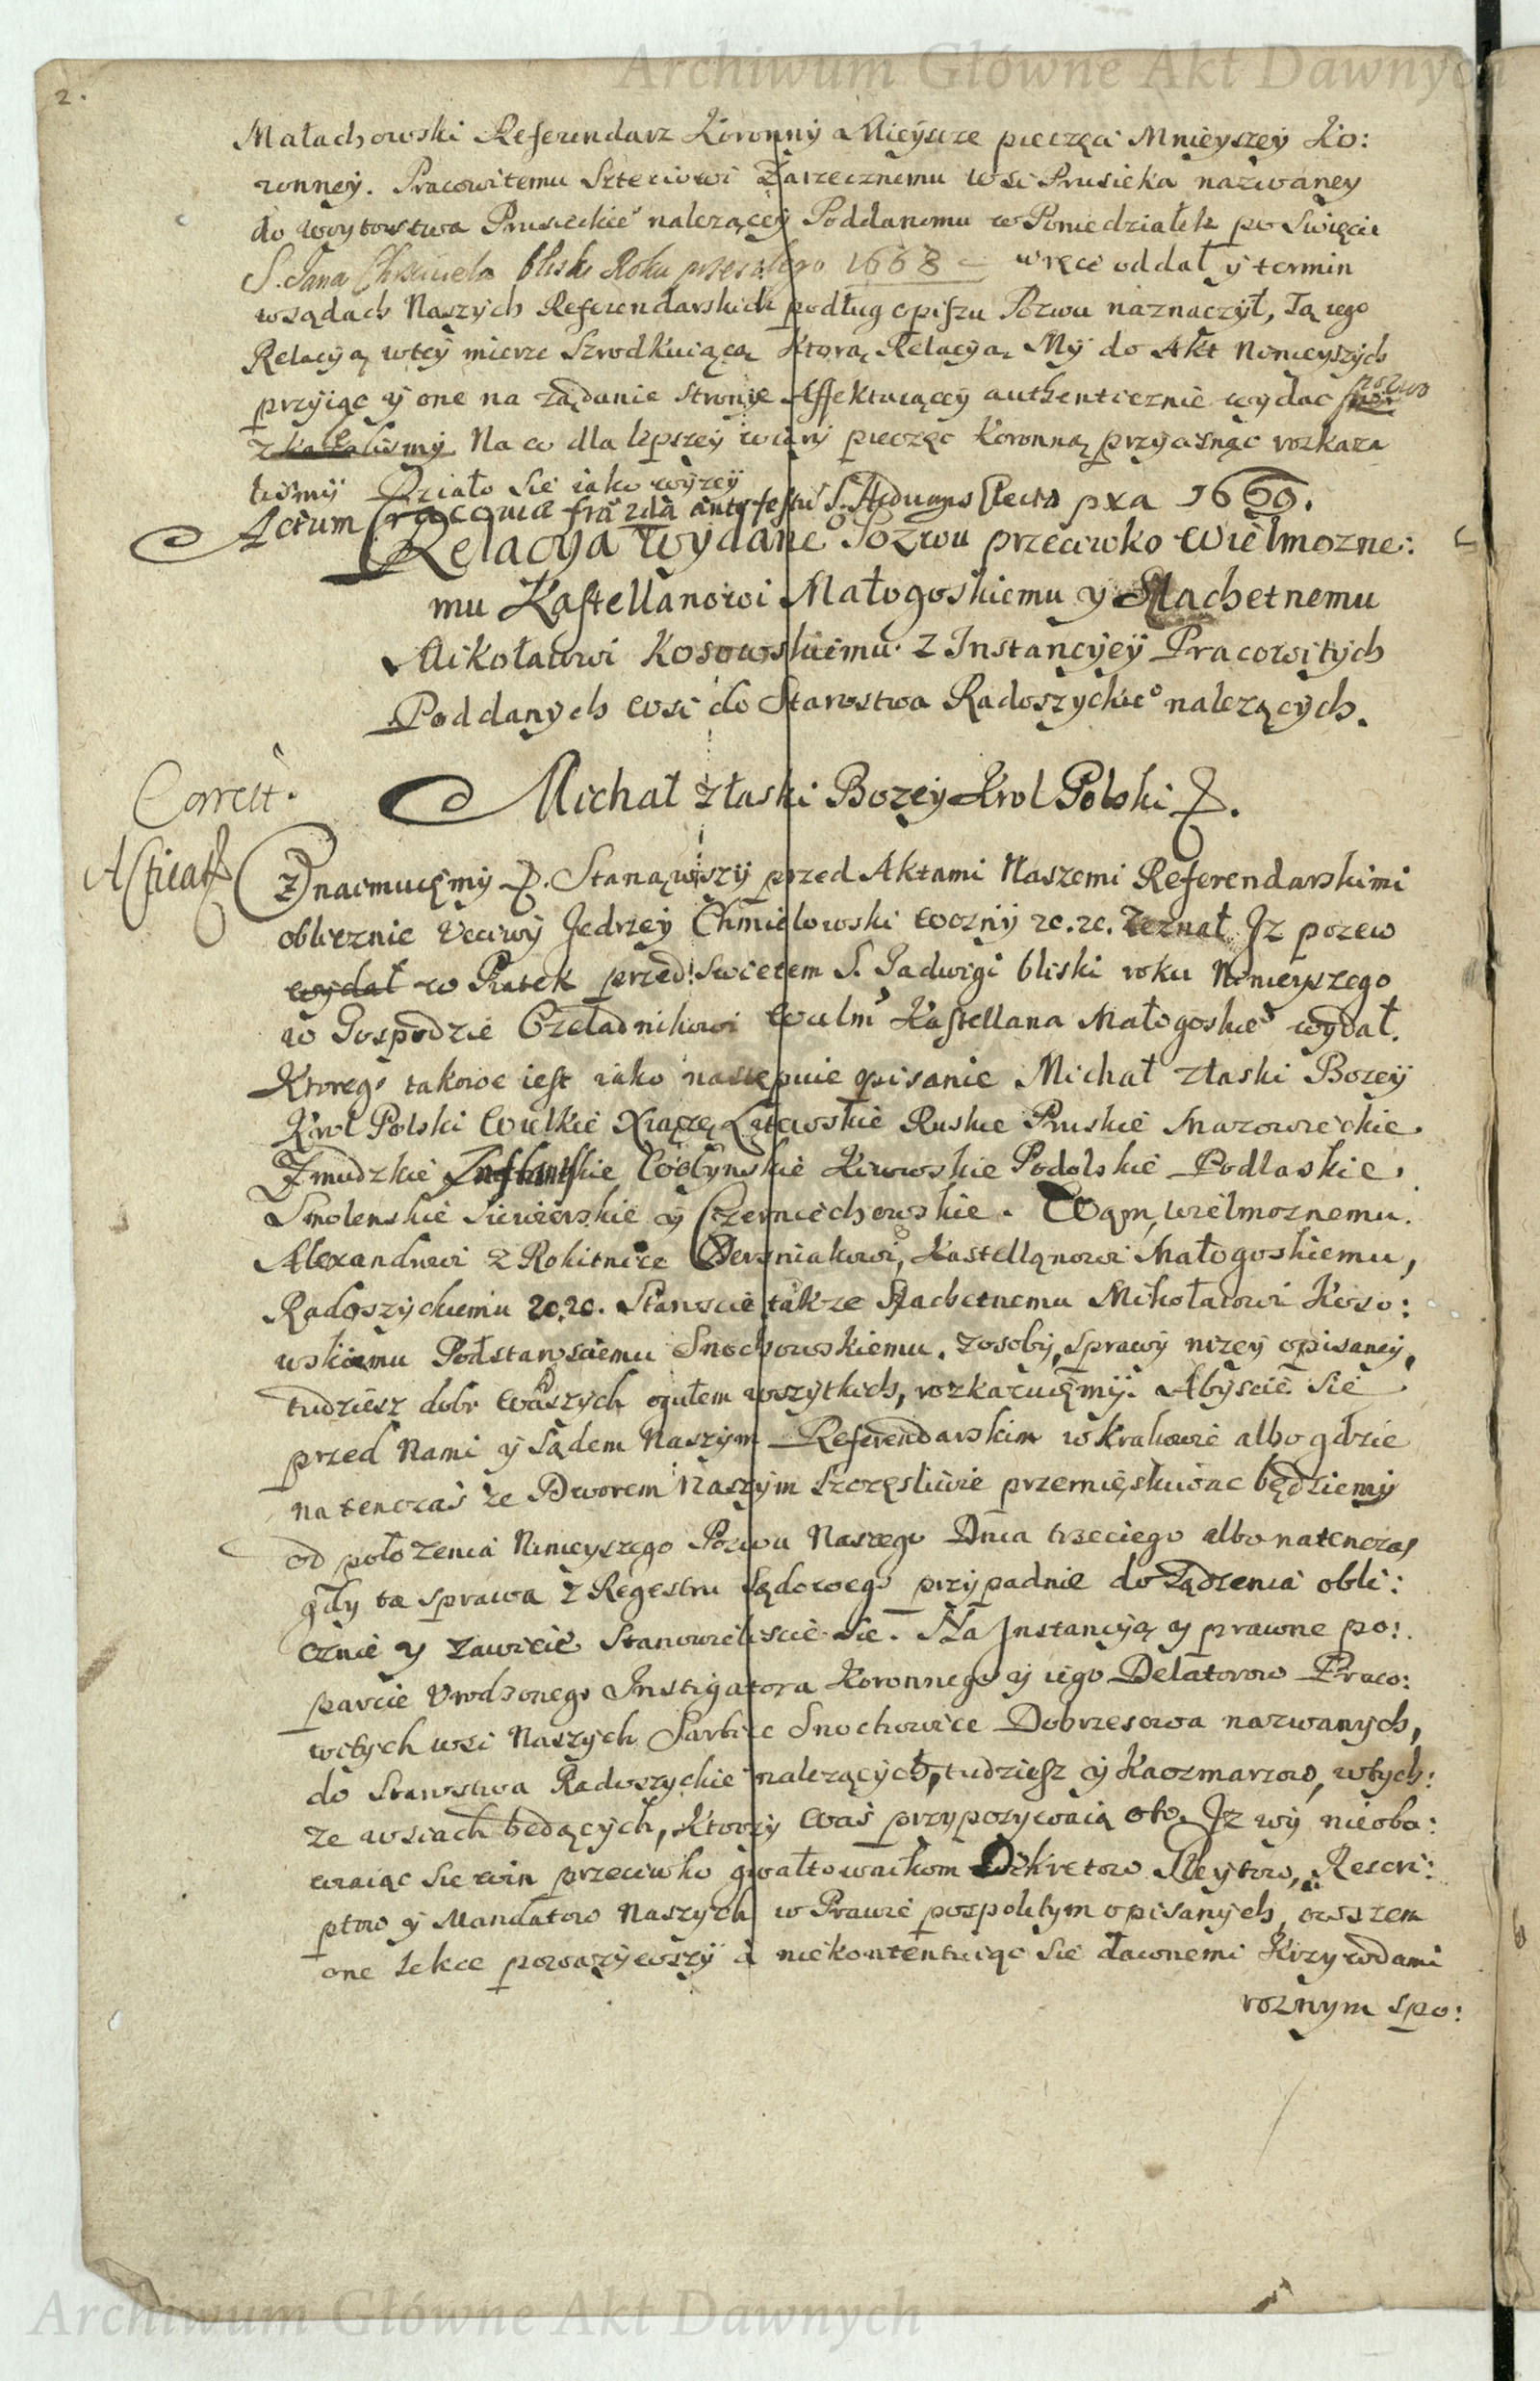 Archiwum Główne Akt Dawnych
2.
Małachowski Referendarz Koronny a Mieysce pieczęci Mnieyszey Ko:
ronney. Pracowitemu Zarzecznemu wsi Prusicka nazwaney
do woytowstwa Prusickie° nalezącey Poddanemu w Poniedziałek po Swięcie
S. Jana Chrzciciela blisko Roku przeszłego 1668 wręce oddał y termin
wsądach Naszych Referendarskich podług opiszu Pozwu naznaczył, Tą iego
Relacyą wtey mierze Szrodkuiącą Ktorą Relacyą My do Akt Ninieyszych
przyiąc y one na ządanie strony Affektuiącey authenticznie wydac pozwo
liliśmy Na co dla lepszey wiary pieczęc Koronną przycisnąc rozkaza
lismy Działo się iako wyzey
Actum Cracoviae fria 2da ante festu S. Hedvigis Electa pxa 1669.
Relacya wydane° Pozwu przeciwko Wielmozne:
mu Kastellanowi Małogoskiemu y Slachetnemu
Mikołaiowi Kosowskiemu. z Instancyey Pracowitych
Poddanych wsi do Starostwa Radoszyckie° nalezących.
Correct.
Michał z łaski Bozey Krol Polski &.
Znaimuięmy &. Stanąwszy przed Aktami Naszemi Referendarskimi
oblicznie Vcciwy Jedrzey Chmielowski wozny 2c. 2c. Zeznał Jz pozew
wydał w Piatek przed Swietem S. Jadwigi bliski roku Ninieyszego
w Gospodzie Czeladnikowi Wielm° Kastellana Małogoskie° wydał.
Ktorego takowe iest iako nastepuie opisanie Michał z łaski Bozey
Krol Polski Wielkie Xiązę Litewskie Ruskie Pruskie Mazowieckie
Zmudzkie Inflantskie Wołynskie Kiiowskie Podolskie Podlaskie
Smolenskie Siewierskie y Czerniechowskie. Wąm, wielmoznemu
Alexandrowi z Rokitnice Dersniakowi, Kastellanowi Małogoskiemu,
Radoszyckiemu 2c. 2c. Staroscie takze Slachetnemu Mikołaiowi Koso:
wskiemu Podstarosciemu Snochowskiemu. z osoby, sprawy nizey opisaney,
tudziesz dobr Waszych ogułem wszytkich, rozkazuięmy. Abyscie się
przed Nami y Sądem Naszym Referendarskim w Krakowie albo gdzie
na tenczas ze Dworem Naszym Szczęsliwie przemięskiwac będziemy
od połozenia Ninieyszego Pozwu Naszego Dnia trzeciego albo natenczas
gdy ta sprawa z Regestru Sądowego przypadnie do Sądzenia obli:
cznie y zawicie Stanowiliscie się. Na Instancyą y prawne po:
parcie Vrodzonego Instigatora Koronnego y iego Delatorow Praco:
witych wsi Naszych Sarbice Snochowice Dobrzesowa nazwanych,
do Starostwa Radoszyckie° nalezących, tudziesz y Kaczmarzow, wtych:
ze wsiach będących, Ktorzy Was przypozywaią oto. Jz wy nieoba:
wiaiąc się win przeciwko gwałtownikom Dekretow Gleytow, Rescri:
ptow y Mandatow Naszych w Prawie pospolitym opisanych, owszem
one lekce powazywszy a niekontentuiąc się dawnemi Krzywdami
roznym spo:
Archiwum Główne Akt Dawnych